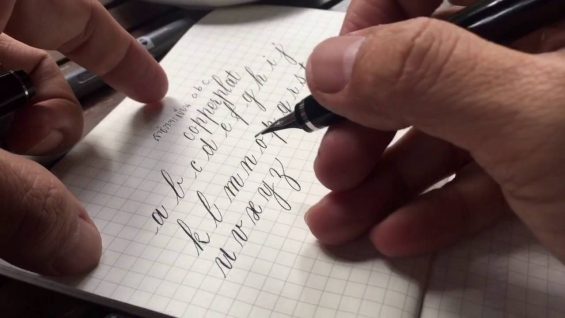 abc
copperplat
a b c d e f g h i j
k l m n o p q r s t
u v x y z